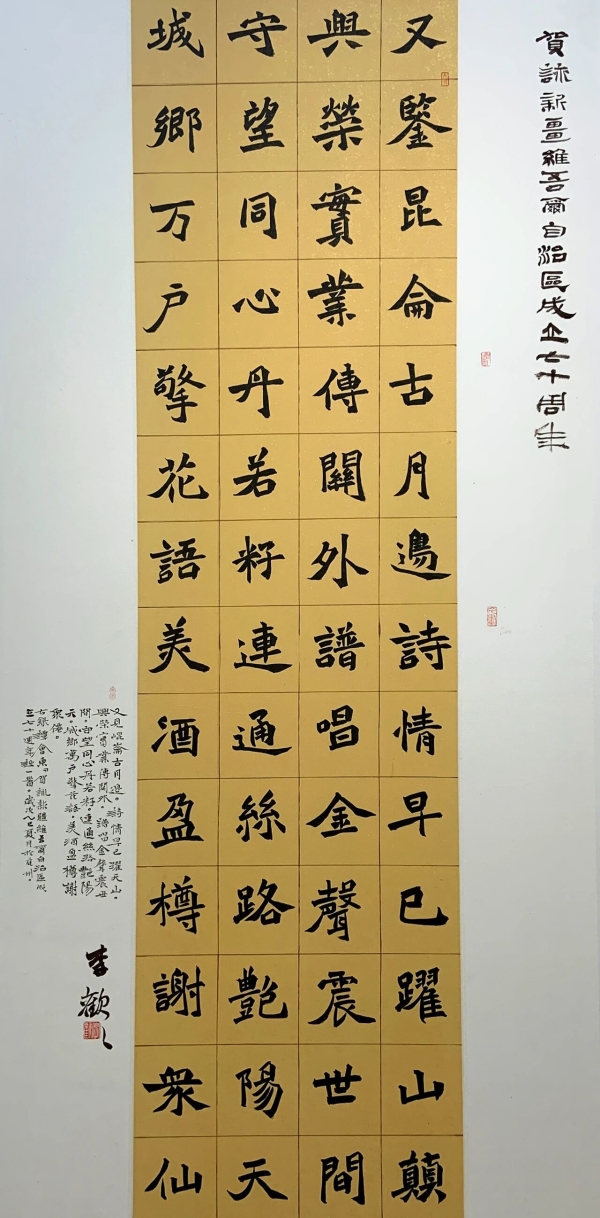 賀詠新畺維吾爾自治區成立七十周年
又鑒昆侖古月邊詩情早已躍山顛
興榮實業傳關外譜唱金聲震世間
守望同心丹若籽連通絲路艷陽天
城鄉万户擎花語美酒盈樽謝衆仙
又見崐崙古月邊。詩情早已躍天山。
興榮實業傳關外。譜唱金聲震世
間。守望同心丹若籽。連通絲路艷陽
天。城鄉萬户擎花語。美酒盈樽謝
衆僊。
右錄會東賀詠新疆維吾爾自治區成
立七十週年一首。歲次乙巳夏月於州。
李歡